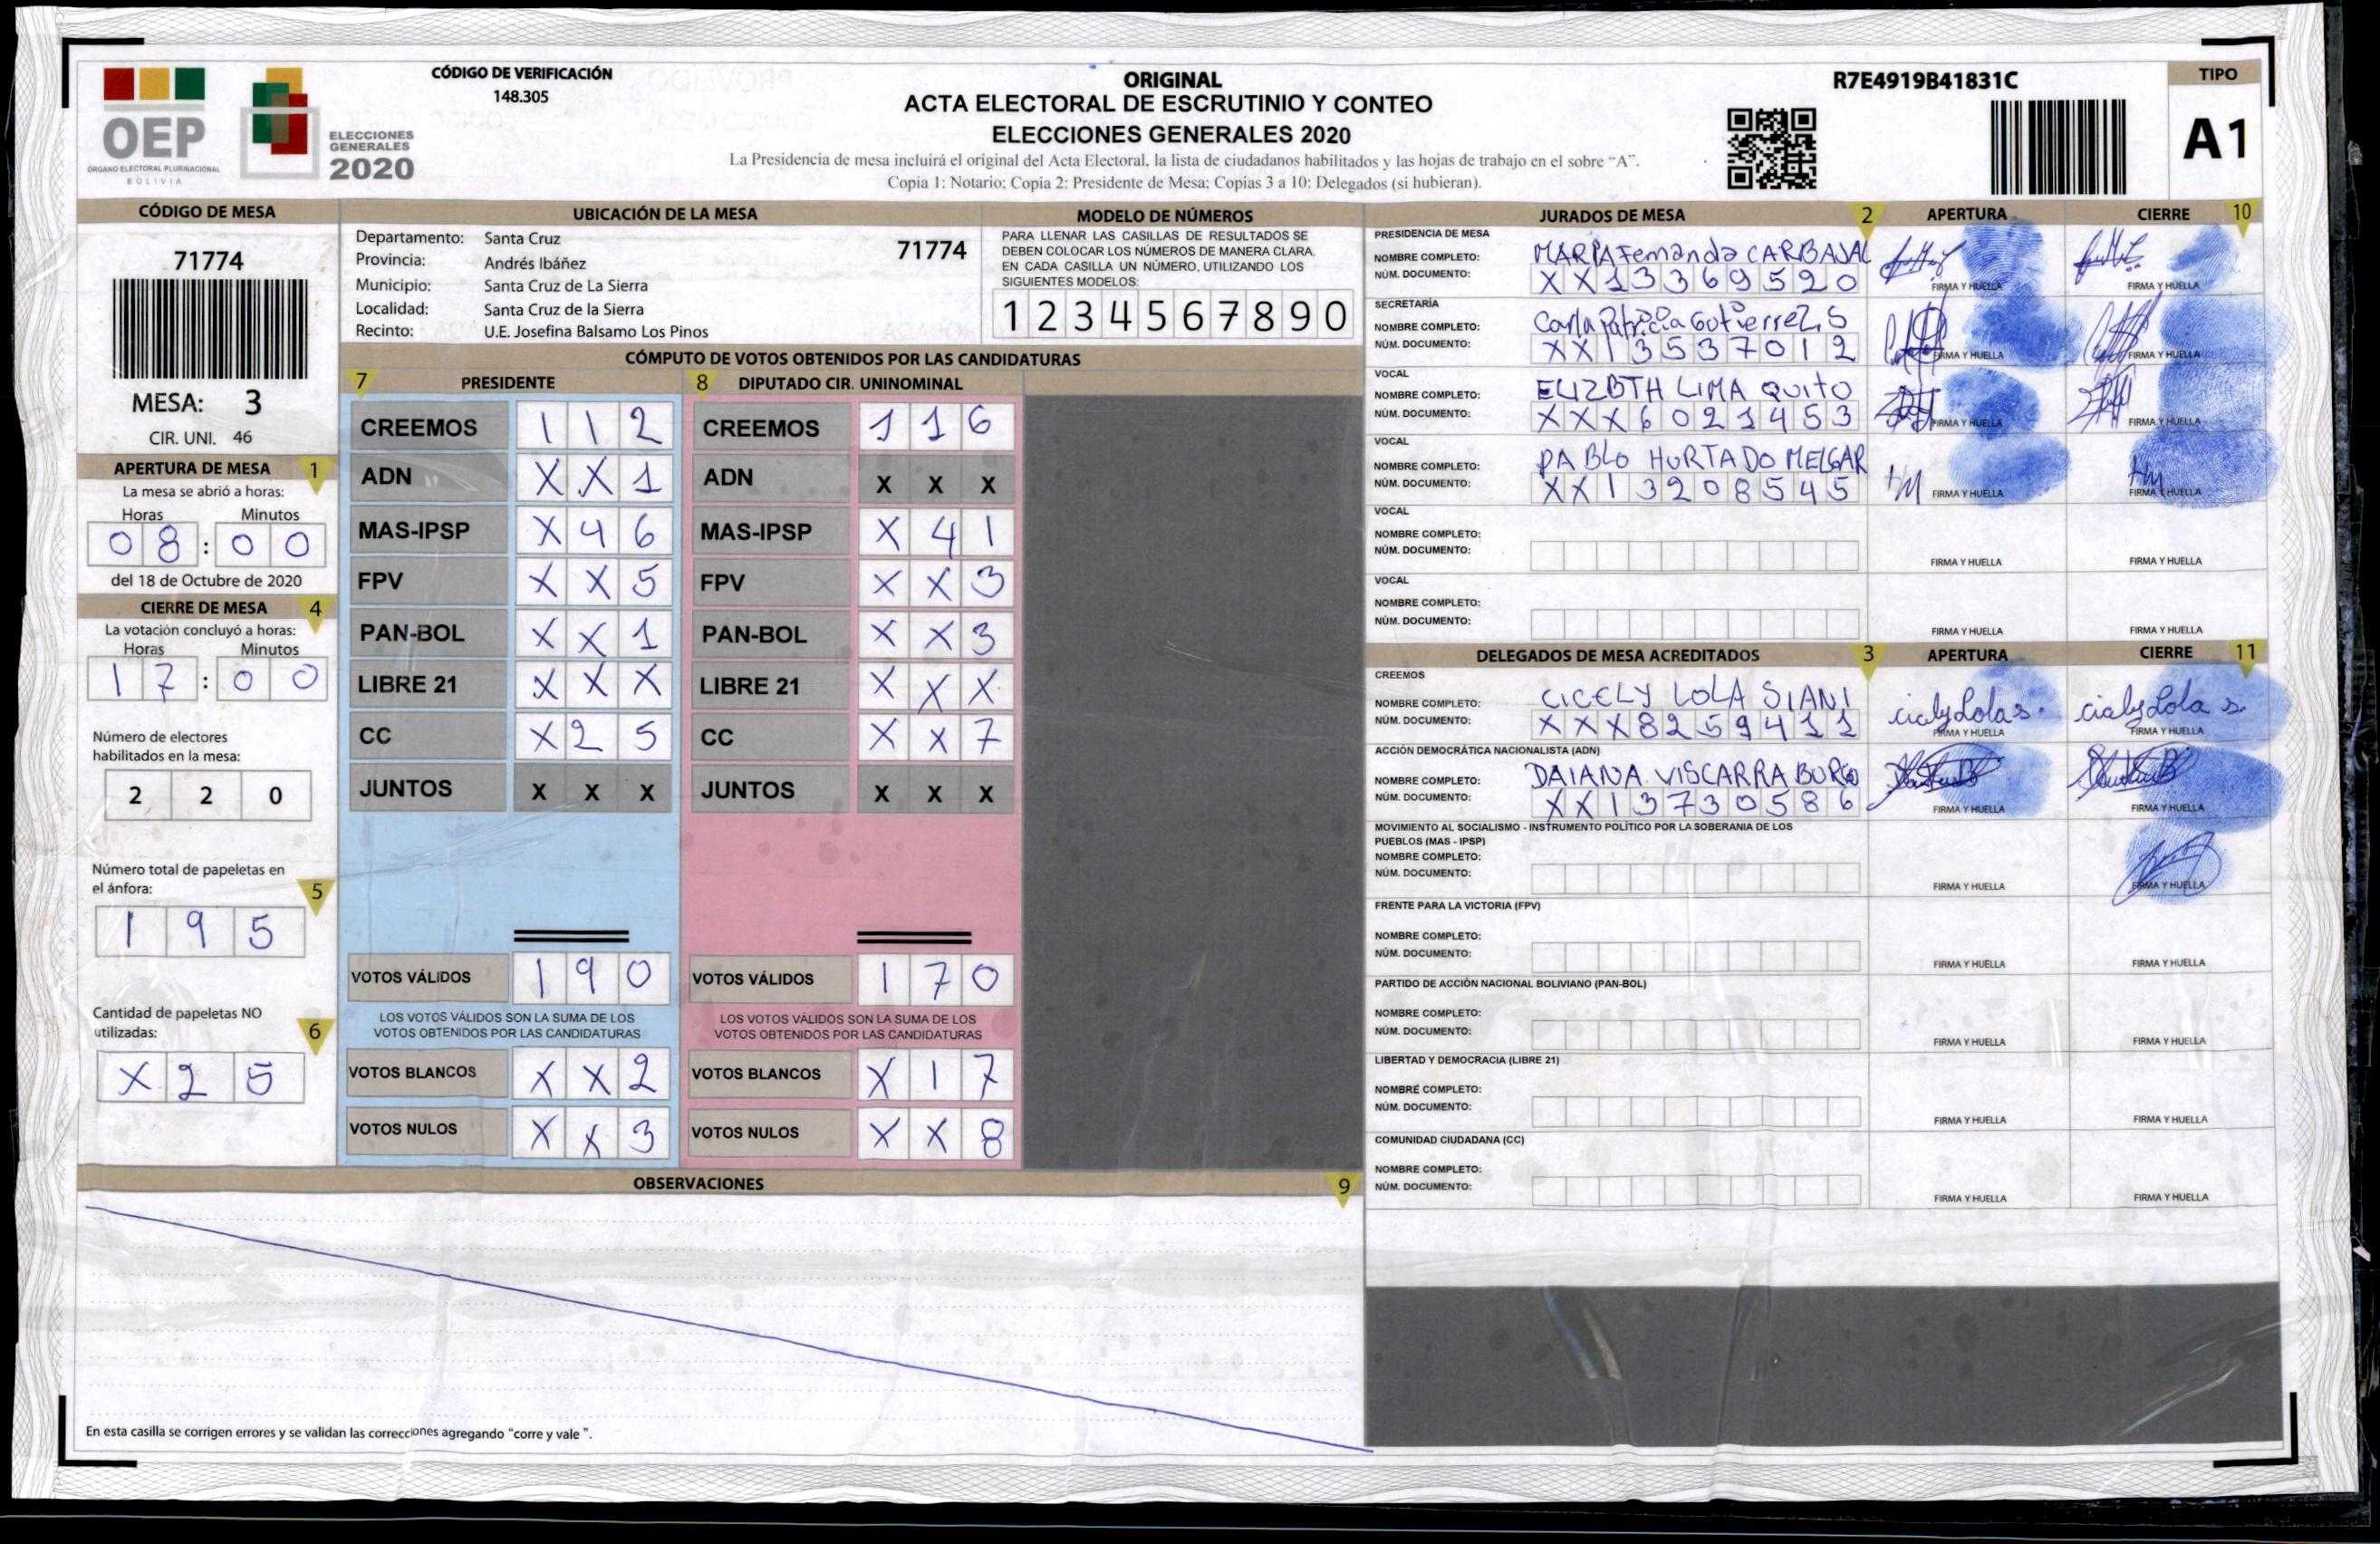 OEP
ÓRGANO ELECTORAL PLURINACIONAL
BOLIVIA
ELECCIONES
GENERALES
2020
CÓDIGO DE VERIFICACIÓN
148.305
ORIGINAL
ACTA ELECTORAL DE ESCRUTINIO Y CONTEO
ELECCIONES GENERALES 2020
La Presidencia de mesa incluirá el original del Acta Electoral, la lista de ciudadanos habilitados y las hojas de trabajo en el sobre "A".
Copia 1: Notario; Copia 2: Presidente de Mesa; Copias 3 a 10: Delegados (si hubieran).
R7E4919B41831C
TIPO
A1
CÓDIGO DE MESA
71774
MESA: 3
CIR. UNI. 46
APERTURA DE MESA 1
La mesa se abrió a horas:
Horas Minutos
0 8 : 0 0
del 18 de Octubre de 2020
CIERRE DE MESA 4
La votación concluyó a horas:
Horas Minutos
1 7 : 0 0
Número de electores
habilitados en la mesa:
2 2 0
Número total de papeletas en
el ánfora: 5
1 9 5
Cantidad de papeletas NO
utilizadas: 6
X 2 5
UBICACIÓN DE LA MESA
Departamento: Santa Cruz 71774
Provincia: Andrés Ibáñez
Municipio: Santa Cruz de La Sierra
Localidad: Santa Cruz de la Sierra
Recinto: U.E. Josefina Balsamo Los Pinos
MODELO DE NÚMEROS
PARA LLENAR LAS CASILLAS DE RESULTADOS SE
DEBEN COLOCAR LOS NÚMEROS DE MANERA CLARA.
EN CADA CASILLA UN NÚMERO, UTILIZANDO LOS
SIGUIENTES MODELOS:
1 2 3 4 5 6 7 8 9 0
CÓMPUTO DE VOTOS OBTENIDOS POR LAS CANDIDATURAS
7 PRESIDENTE 8 DIPUTADO CIR. UNINOMINAL
CREEMOS 1 1 2 CREEMOS 1 1 6
ADN X X 1 ADN X X X
MAS-IPSP X 4 6 MAS-IPSP X 4 1
FPV X X 5 FPV X X 3
PAN-BOL X X 1 PAN-BOL X X 3
LIBRE 21 X X X LIBRE 21 X X X
CC X 2 5 CC X X 7
JUNTOS X X X JUNTOS X X X
VOTOS VÁLIDOS 1 9 0 VOTOS VÁLIDOS 1 7 0
LOS VOTOS VÁLIDOS SON LA SUMA DE LOS LOS VOTOS VÁLIDOS SON LA SUMA DE LOS
VOTOS OBTENIDOS POR LAS CANDIDATURAS VOTOS OBTENIDOS POR LAS CANDIDATURAS
VOTOS BLANCOS X X 2 VOTOS BLANCOS X 1 7
VOTOS NULOS X X 3 VOTOS NULOS X X 8
OBSERVACIONES 9
En esta casilla se corrigen errores y se validan las correcciones agregando "corre y vale ".
JURADOS DE MESA 2 APERTURA CIERRE 10
PRESIDENCIA DE MESA
NOMBRE COMPLETO: MARIA Fernanda CARBAJAL
NÚM. DOCUMENTO: X X 1 3 3 6 9 5 2 0 FIRMA Y HUELLA FIRMA Y HUELLA
SECRETARÍA
NOMBRE COMPLETO: Carla Patricia Gutierrez. S
NÚM. DOCUMENTO: X X 1 3 5 3 7 0 1 2 FIRMA Y HUELLA FIRMA Y HUELLA
VOCAL
NOMBRE COMPLETO: ELIZBTH LIMA QUITO
NÚM. DOCUMENTO: X X X 6 0 2 1 4 5 3 FIRMA Y HUELLA FIRMA Y HUELLA
VOCAL
NOMBRE COMPLETO: PABLO HURTADO MELGAR
NÚM. DOCUMENTO: X X 1 3 2 0 8 5 4 5 FIRMA Y HUELLA FIRMA Y HUELLA
VOCAL
NOMBRE COMPLETO:
NÚM. DOCUMENTO: FIRMA Y HUELLA FIRMA Y HUELLA
VOCAL
NOMBRE COMPLETO:
NÚM. DOCUMENTO: FIRMA Y HUELLA FIRMA Y HUELLA
DELEGADOS DE MESA ACREDITADOS 3 APERTURA CIERRE 11
CREEMOS
NOMBRE COMPLETO: CICELY LOLA SIANI
NÚM. DOCUMENTO: X X X 8 2 5 9 4 1 1 FIRMA Y HUELLA FIRMA Y HUELLA
ACCIÓN DEMOCRÁTICA NACIONALISTA (ADN)
NOMBRE COMPLETO: DAIANA VISCARRA BURGO
NÚM. DOCUMENTO: X X 1 3 7 3 0 5 8 6 FIRMA Y HUELLA FIRMA Y HUELLA
MOVIMIENTO AL SOCIALISMO - INSTRUMENTO POLÍTICO POR LA SOBERANIA DE LOS
PUEBLOS (MAS - IPSP)
NOMBRE COMPLETO:
NÚM. DOCUMENTO: FIRMA Y HUELLA FIRMA Y HUELLA
FRENTE PARA LA VICTORIA (FPV)
NOMBRE COMPLETO:
NÚM. DOCUMENTO: FIRMA Y HUELLA FIRMA Y HUELLA
PARTIDO DE ACCIÓN NACIONAL BOLIVIANO (PAN-BOL)
NOMBRE COMPLETO:
NÚM. DOCUMENTO: FIRMA Y HUELLA FIRMA Y HUELLA
LIBERTAD Y DEMOCRACIA (LIBRE 21)
NOMBRE COMPLETO:
NÚM. DOCUMENTO: FIRMA Y HUELLA FIRMA Y HUELLA
COMUNIDAD CIUDADANA (CC)
NOMBRE COMPLETO:
NÚM. DOCUMENTO: FIRMA Y HUELLA FIRMA Y HUELLA